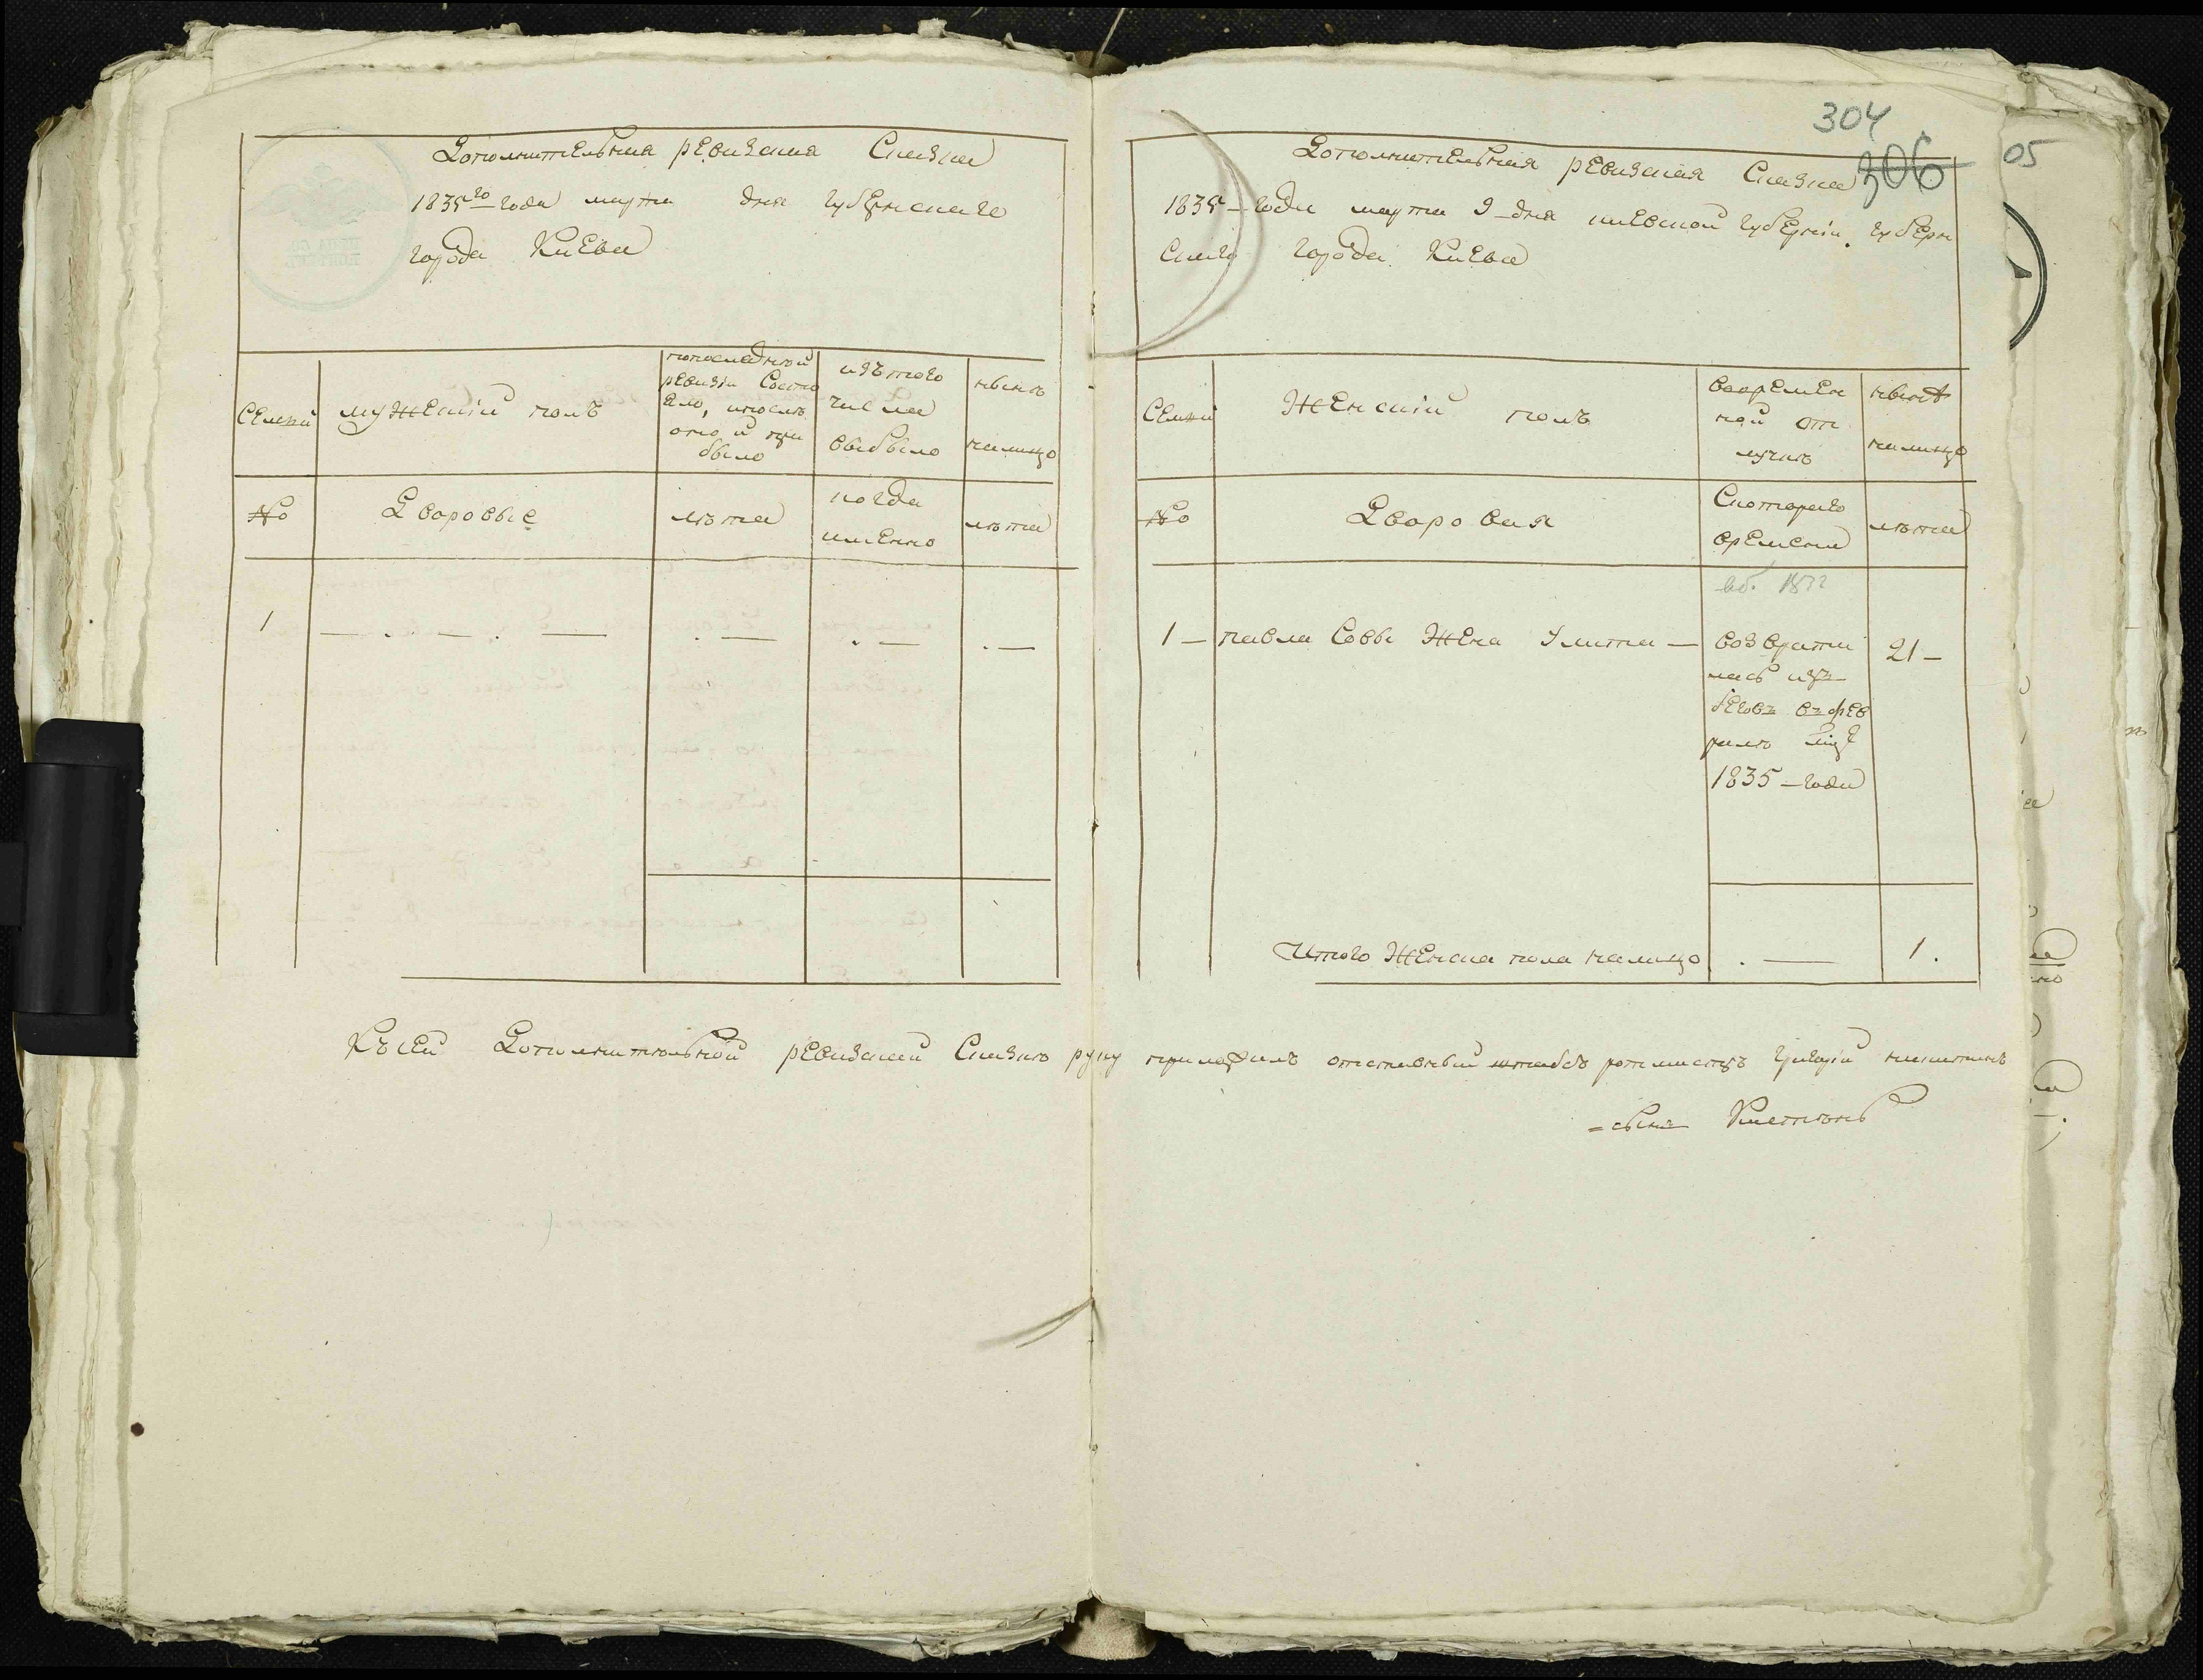 Дополнительная ревиская Сказка
1835го года марта дня губернскаго
города Киева
СЕмьи
мужескій полъ
попоследней
ревизіи Состо
яло, ипосле
оно й при
было
изътого
числа
выбыло
нынѣ
налицо
№
Дворовые
лѣта
когда
имЕнно
лѣта
1
304
306
05
Дополнительная ревизская Сказка
1835 – года марта 9 – дня киевской губерніи губерн
Скаго города Киева
СЕмьи
ЖЕнский полъ
вовремЕн
ной от
лучкѣ
нынѣ
налицо
№
Дворовая
Скотораго
врЕмени
лѣта
1 – павла Саввы ЖЕна Улита –
возврати
лась изъ
бЕговъ въ фЕв
ралѣ мцѣ
1835 – года
21 –
Итого ЖЕнска пола налицо
1.
КъсЕй Дополнительной рЕвизской Сказкѣ руку приложилъ отставный штабсъ ротмистръ Григорій никитинъ
= сынъ